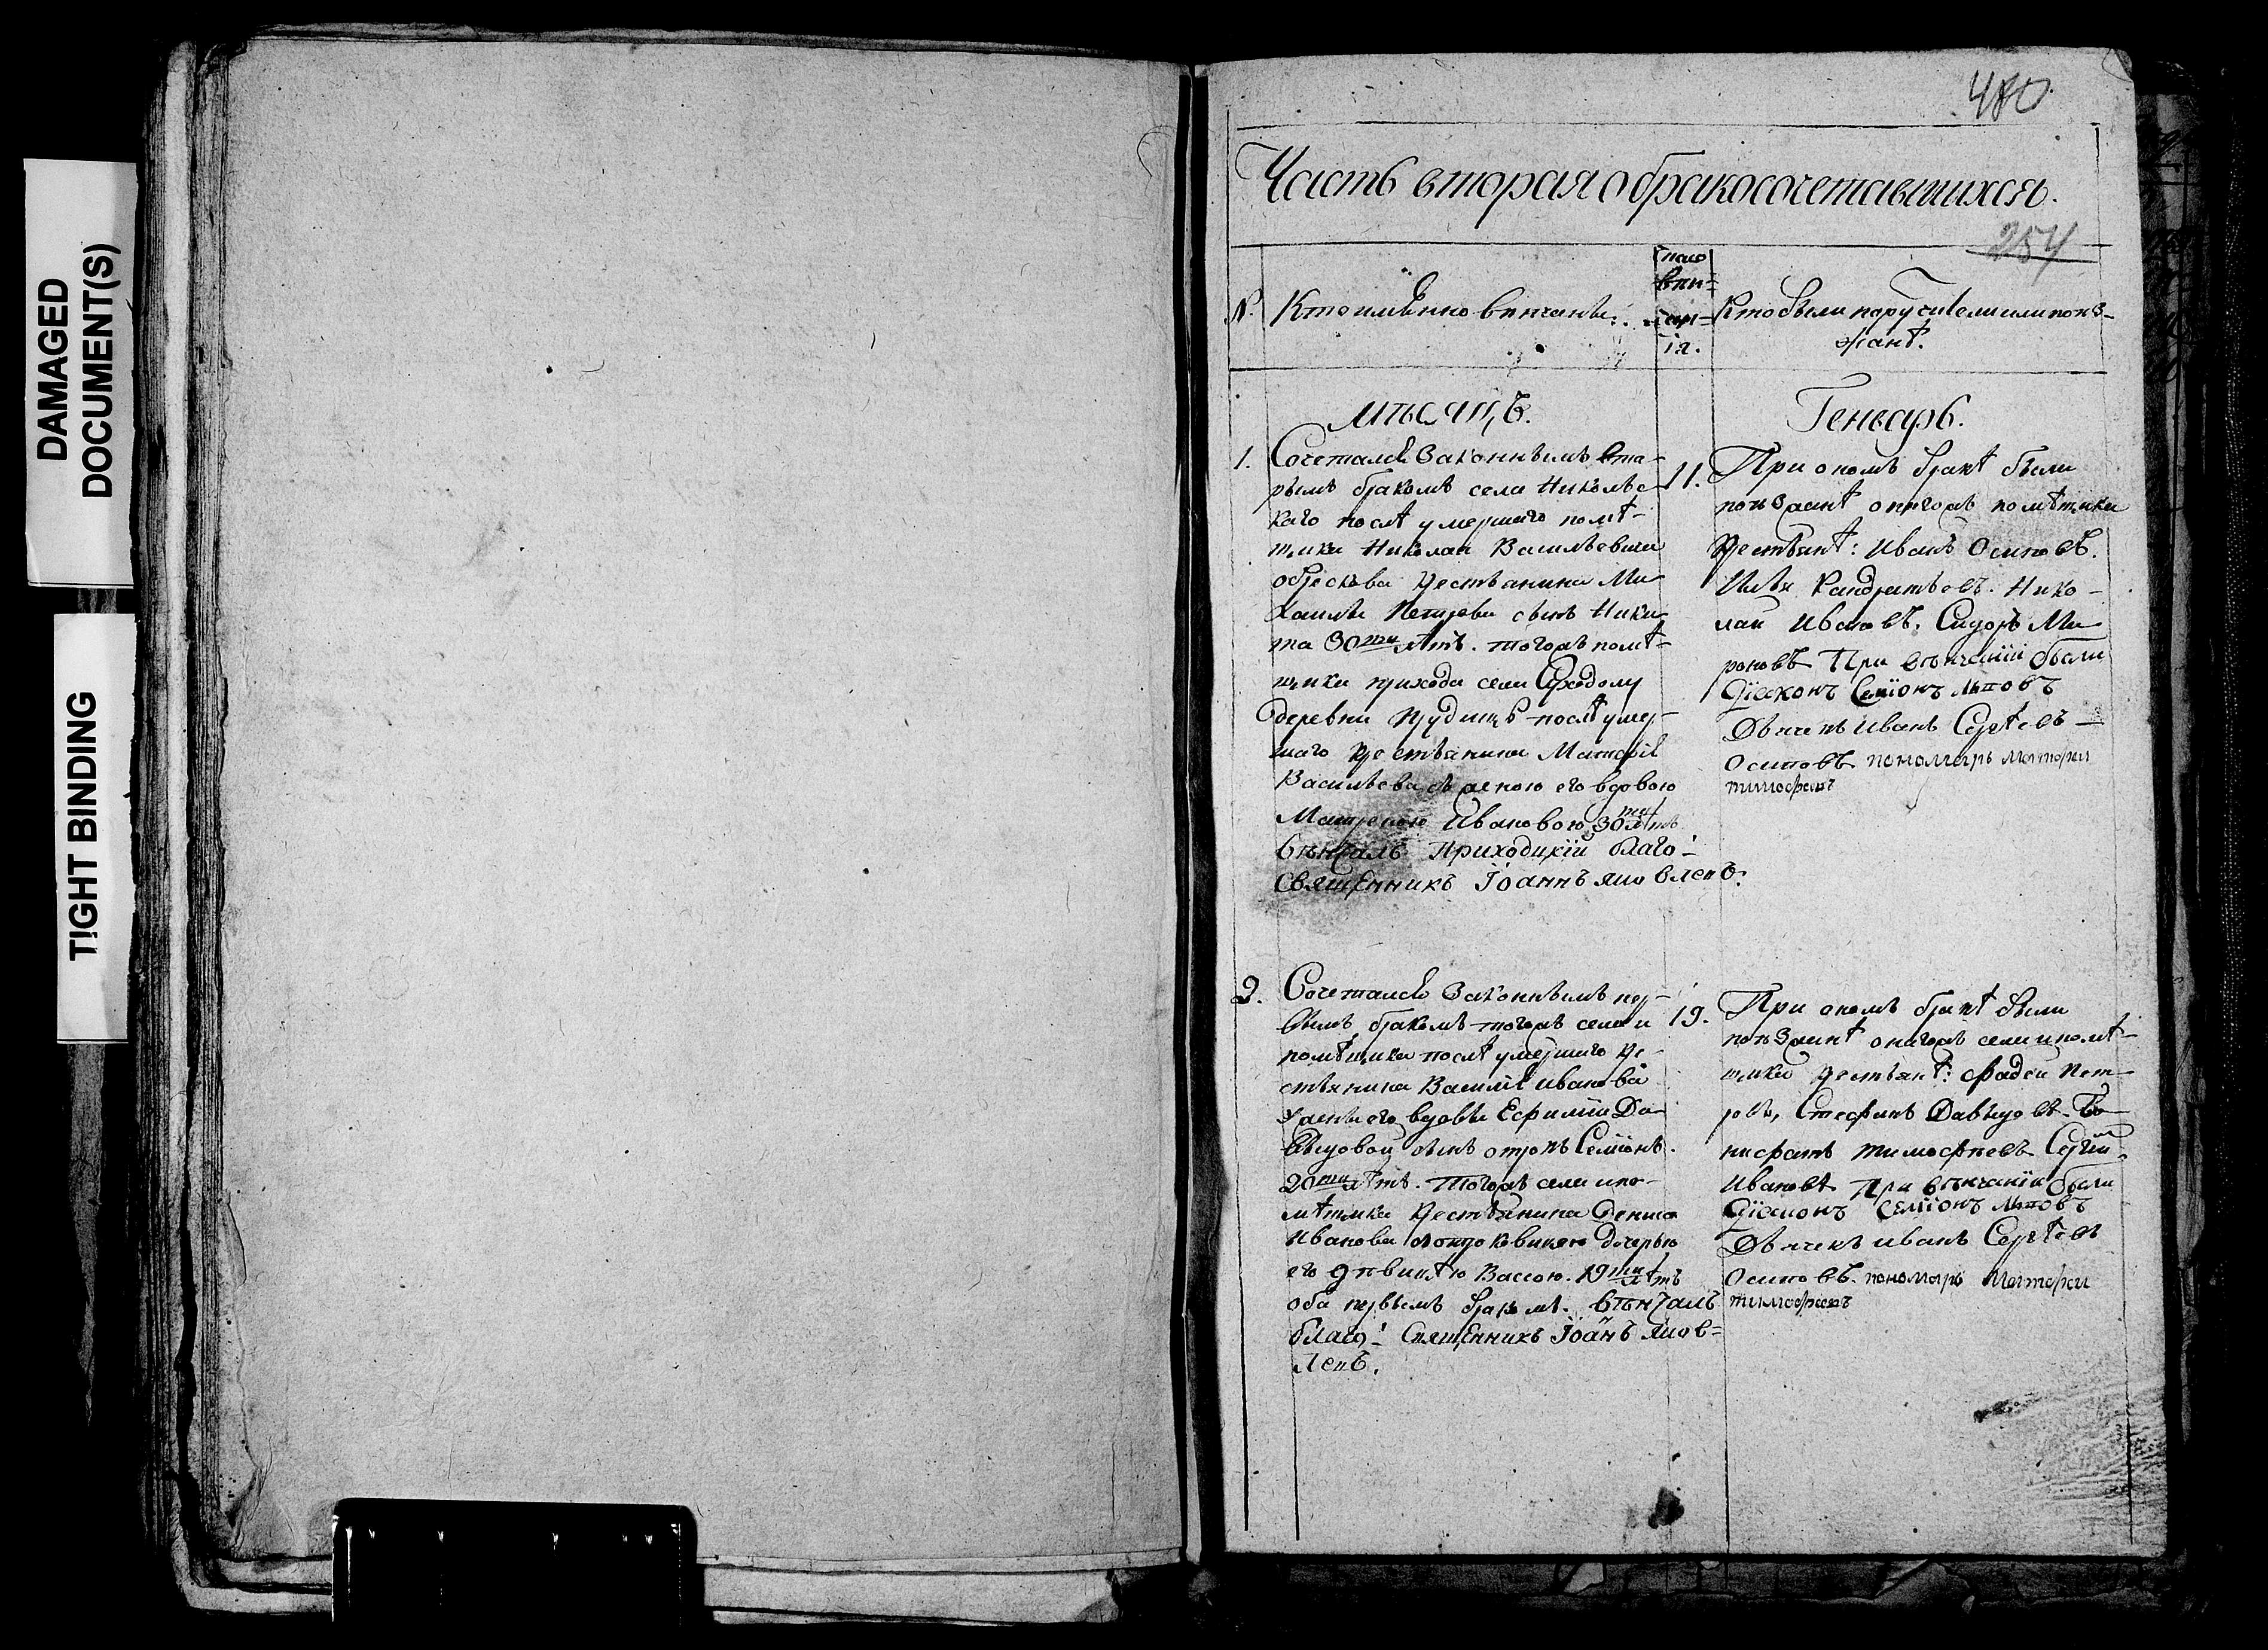 DAMAGED
DOCUMENT(S)
TIGHT BINDING
480
Часть вторая о бракосочетавшихся.
254
№.
Кто имѣнно венчаны:
число
вен=
чан=
ія.
Кто были поручители или поѣз-
жанѣ.
мѣсяцъ.
Геньварь.
1.
Сочетался законнымъ вта-
рымъ бракомъ села Никольс-
каго послѣ умершаго помѣ-
щика Николая Васильевича
обрескова крестьянина Ми-
хаилы Петрова сынъ Ники-
та 30ти лѣтъ. тогожъ помѣ-
щика прихода села Суходолу
деревни Прудищь послѣ умер-
шаго крестьянина Матфѣя
Васильева съ женою его вдовою
Матреною Ивановою 30ти лѣтъ
вѣнчалъ Приходцкій благо-
Священникъ Іоаннъ яковлевъ.
11.
При ономъ бракѣ были
поѣзжанѣ онагожъ помѣщика
крестьянѣ: Иванъ Осиповъ.
Илья Кандратьевъ. Нико-
лай Ивановъ. Сидоръ Ми-
роновъ При вѣнчаніи были
Діяконъ Семіонъ Льповъ
Дьячекъ Иванъ Сергѣевъ
Осиповъ пономарь матфеи
тимофеевъ
2.
Сочетался законнымъ пер-
вымъ бракомъ тогожъ села и
помѣщика послѣ умершаго кре-
стьянина Василія иванова
жены его вдовы Ефиміи Да-
выдовой сынъ отрокъ Семіонъ.
20ти лѣтъ. тогожъ села и по-
мѣщика крестьянина Дениса
Иванова съ отроковицею дочерью
его девицѣю Вассою. 19ти лѣтъ
оба первымъ бракомъ. вѣнчалъ
благо- Священникъ Іоаннъ яков=
левъ.
19.
При ономъ бракѣ были
поѣзжанѣ онагожъ села и помѣ-
щика крестьянѣ: Фадей Пет-
ровъ, Стефанъ Давыдовъ. Бо-
нифатъ тимофеевъ Сергій
Ивановъ При вѣнчаніи были
Діяконъ Семіонъ Льповъ
Дьячекъ иванъ Сергѣевъ
Осиповъ. пономарь Матфеи
тимофеевъ